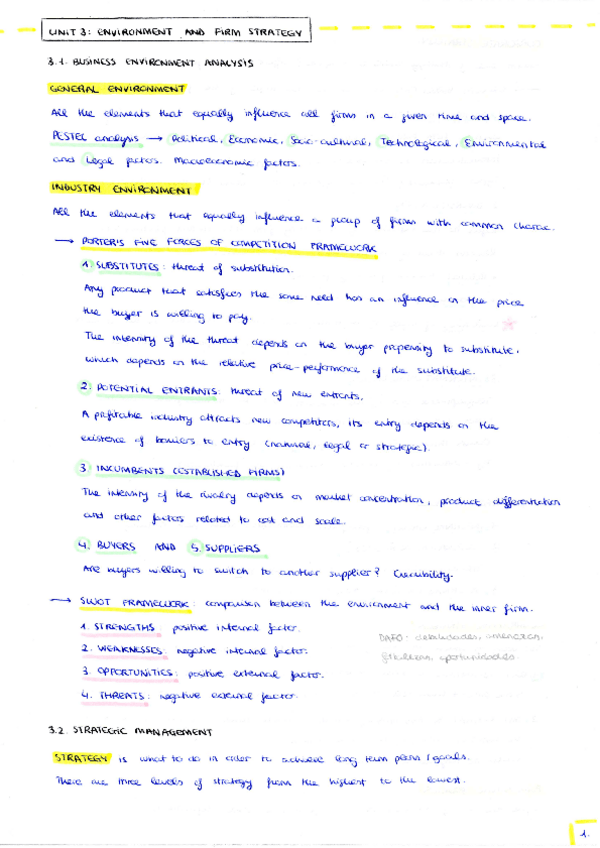 UNIT 3: ENVIRONMENT AND FIRM STRATEGY
3.1. BUSINESS ENVIRONMENT ANALYSIS
GENERAL ENVIRONMENT
All the elements that equally influence all firms in a given time and space.
PESTEL analysis → Political, Economic, Socio-cultural, Technological, Environmental
and Legal factors. Macroeconomic factors.
INDUSTRY ENVIRONMENT
All the elements that equally influence a group of firms with common charac.
→ PORTER'S FIVE FORCES OF COMPETITION FRAMEWORK
1. SUBSTITUTES: threat of substitution.
Any product that satisfies the same need has an influence on the price
the buyer is willing to pay.
The intensity of the threat depends on the buyer propensity to substitute,
which depends on the relative price-performance of the substitute.
2. POTENTIAL ENTRANTS: threat of new entrants.
A profitable industry attracts new competitors, its entry depends on the
existence of barriers to entry (natural, legal or strategic).
3. INCUMBENTS (ESTABLISHED FIRMS)
The intensity of the rivalry depends on market concentration, product differentiation
and other factors related to cost and scale.
4. BUYERS AND 5. SUPPLIERS
Are buyers willing to switch to another supplier? Credibility.
→ SWOT FRAMEWORK: comparison between the environment and the inner firm.
1. STRENGTHS: positive internal factor.
DAFO: debilidades, amenazas,
2. WEAKNESSES: negative internal factor.
fortalezas, oportunidades
3. OPPORTUNITIES: positive external factor.
4. THREATS: negative external factor.
3.2. STRATEGIC MANAGEMENT
STRATEGY is what to do in order to achieve long term plans/goals.
There are three levels of strategy from the highest to the lowest.
1.